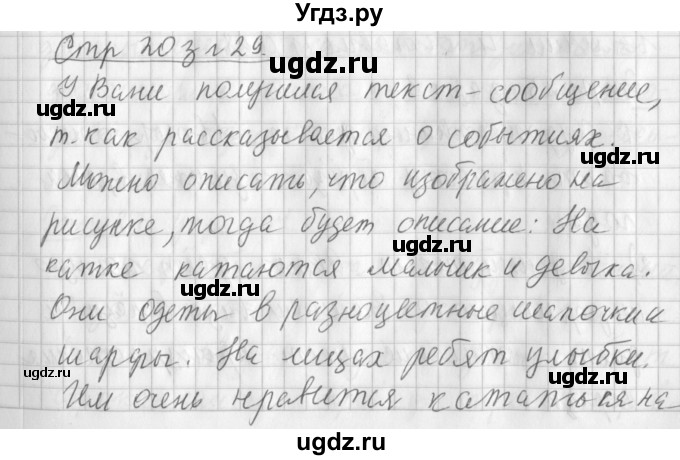 Угдз.ру
Стр 20 з г 29.
У Вани получился текст-сообщение,
т. как рассказывается о событиях.
Можно описать, что изображено на
рисунке, тогда будет описание: На
катке катаются мальчик и девочка.
Они одеты в разноцветные шапочки и
шарфы. На лицах ребят улыбки.
Им очень нравится кататься на
ugdz.ru
ugdz.ru
ugdz.ru
ugdz.ru
ugdz.ru
ugdz.ru
ugdz.ru
ugdz.ru
ugdz.ru
ugdz.ru